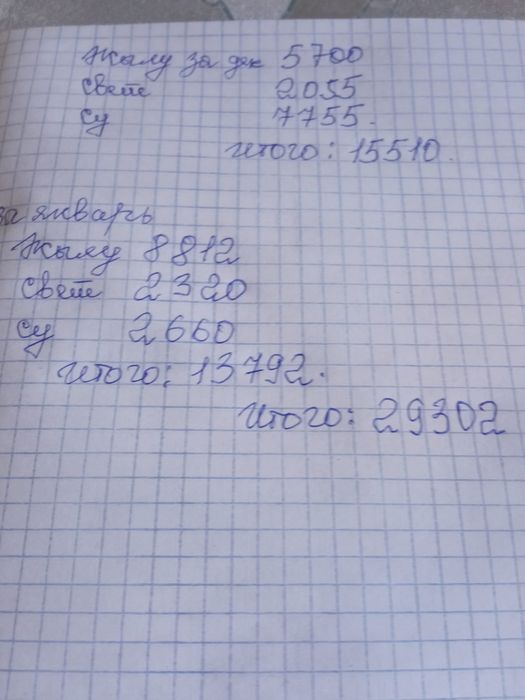 Жылу за дек 5700
свет 2055
су 7755.
итого: 15510.
за январь
Жылу 8812
свет 2320
су 2660
итого: 13792.
итого: 29302